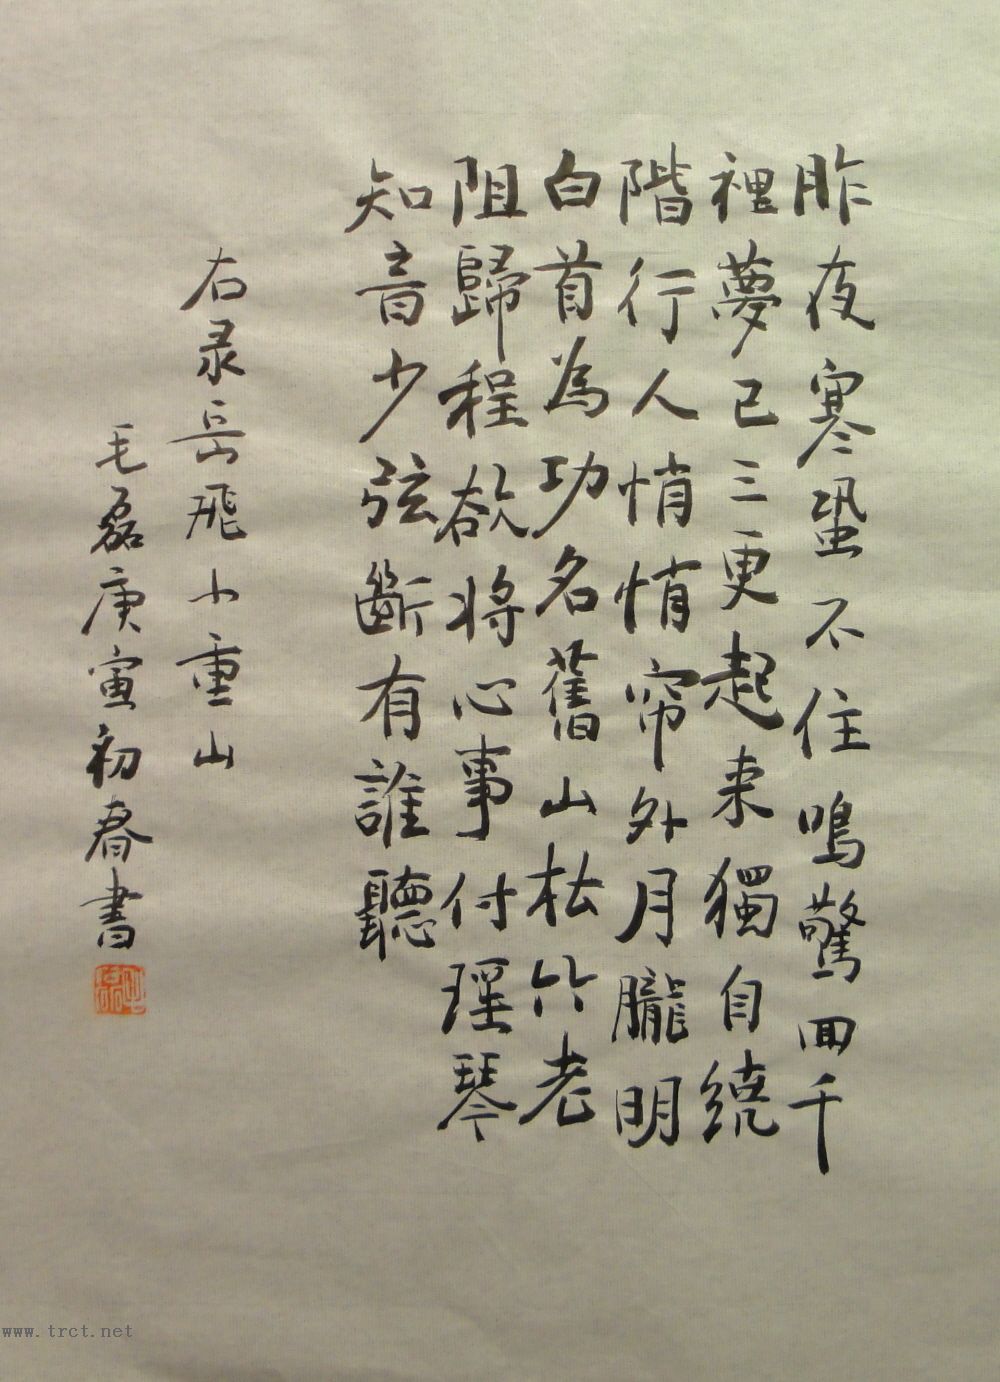 昨夜寒蛩不住鳴驚回千
裡夢已三更起来獨自繞
階行人悄悄帘外月朧明
白首為功名舊山松竹老
阻歸程欲将心事付瑶琴
知音少弦斷有誰聽
右录岳飛小重山
毛磊庚寅初春書
www.trct.net